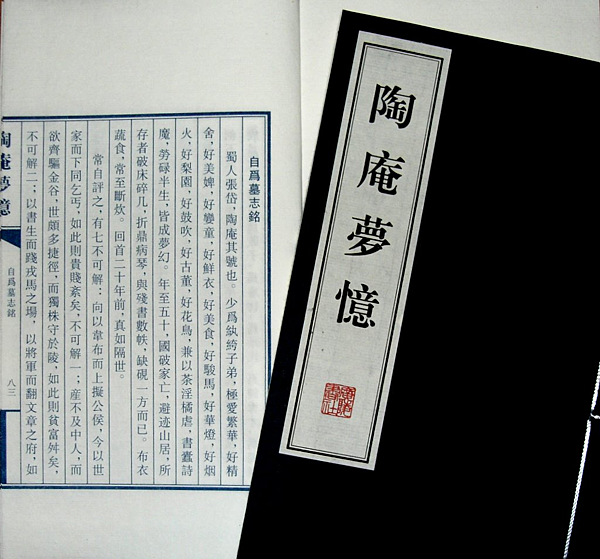 自爲墓志銘
蜀人張岱，陶庵其號也。少爲紈絝子弟，極愛繁華，好精
舍，好美婢，好孌童，好鮮衣，好美食，好駿馬，好華燈，好烟
火，好梨園，好鼓吹，好古董，好花鳥，兼以茶淫橘虐，書蠹詩
魔，勞碌半生，皆成夢幻。年至五十，國破家亡，避迹山居，所
存者破床碎几，折鼎病琴，與殘書數帙，缺硯一方而已。布衣
蔬食，常至斷炊。回首二十年前，真如隔世。
常自評之，有七不可解：向以韋布而上擬公侯，今以世
家而下同乞丐，如此則貴賤紊矣，不可解一；産不及中人，而
欲齊驅金谷，世頗多捷徑，而獨株守於陵，如此則貧富舛矣，
不可解二；以書生而踐戎馬之場，以將軍而翻文章之府，如
陶庵夢憶
自爲墓志銘
八三
陶庵夢憶